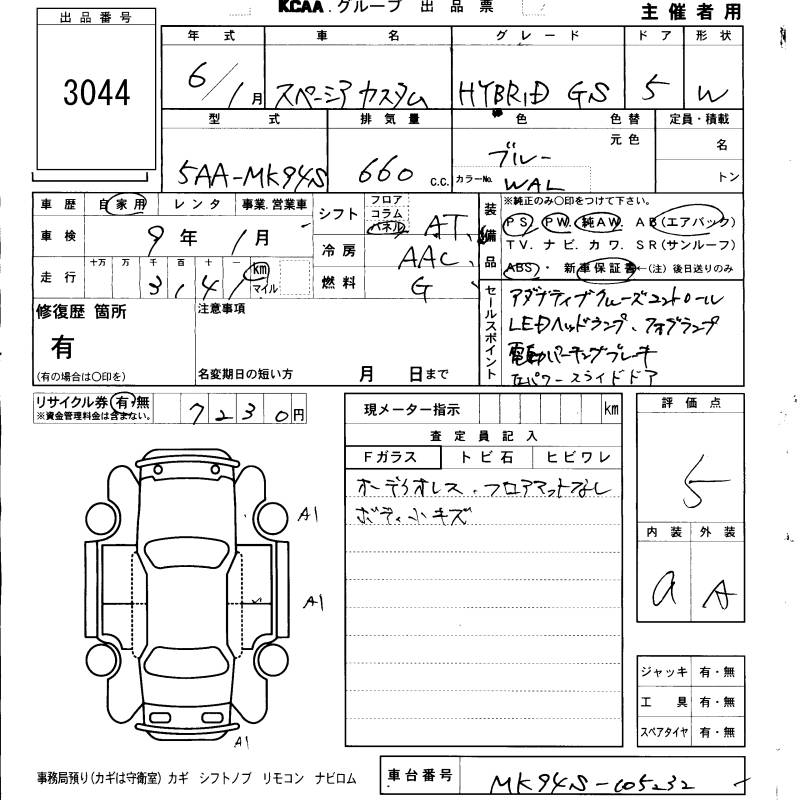 KCAA グループ 出品票
主催者用
出品番号
3044
年式 車名 グレード ドア 形状
6/1月 スペーシア カスタム HYBRID GS 5 W
型式 排気量 色 色替 定員・積載
元色 名
5AA-MK94S 660 C.C. ブルー
カラーNo. WAL トン
車歴 自家用 レンタ 事業.営業車
車検 9年 1月
走行 十万 万 千 百 十 一
3,141 km マイル
シフト フロア コラム パネル AT
冷房 AAC
燃料 G
装備品
※純正のみ〇印をつけて下さい。
PS PW. 純AW. AB(エアバック)
TV. ナビ. カワ. SR(サンルーフ)
ABS・ 新車保証書←(注)後日送りのみ
セールスポイント
アダプティブクルーズコントロール
LEDヘッドランプ、フォグランプ
電動パーキングブレーキ
左パワースライドドア
修復歴 箇所
有
(有の場合は〇印を)
注意事項
名変期日の短い方 月 日まで
リサイクル券 有・無
※資金管理料金は含まない。
7230円
現メーター指示 km
査定員記入
Fガラス トビ石 ヒビワレ
オーディオレス、フロアマットなし
ボディ小キズ
評価点
5
内装 外装
a A
A1
A1
A1
ジャッキ 有・無
工具 有・無
スペアタイヤ 有・無
事務局預り(カギは守衛室) カギ シフトノブ リモコン ナビロム
車台番号 MK94S-605232